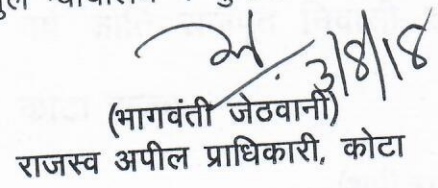 3/8/18
(भागवंती जेठवानी)
राजस्व अपील प्राधिकारी, कोटा